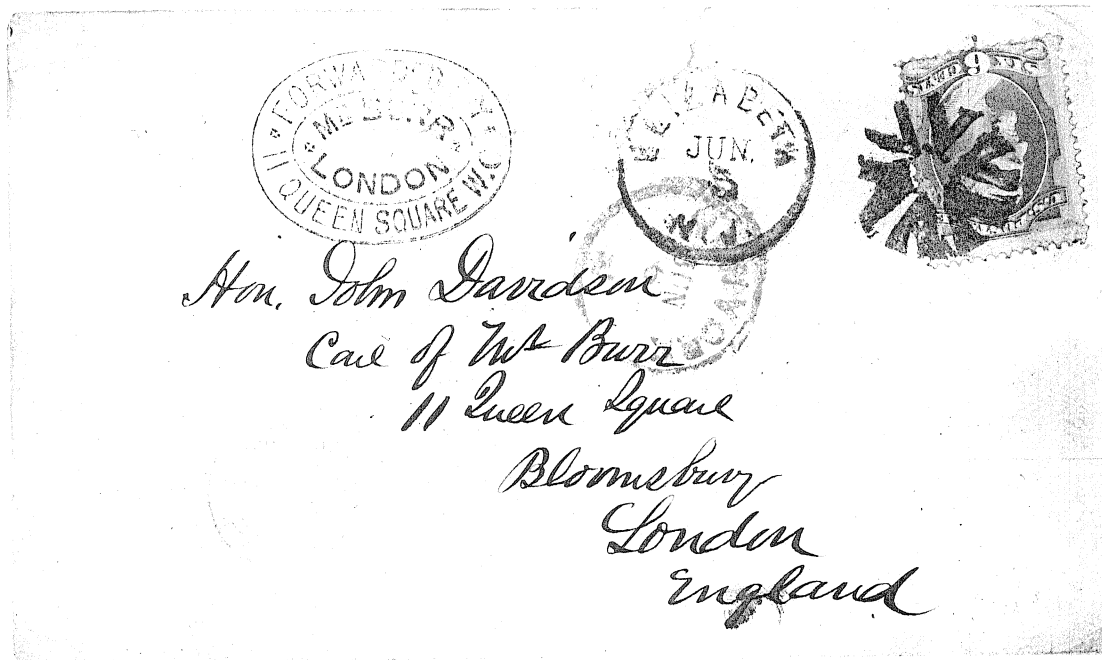 FORWARDED BY
MR BURR
LONDON
11 QUEEN SQUARE W.C.
ELIZABETH
JUN.
5
N.J.
Hon. John Davidson
Care of Mr Burr
11 Queen Square
Bloomsbury
London
England